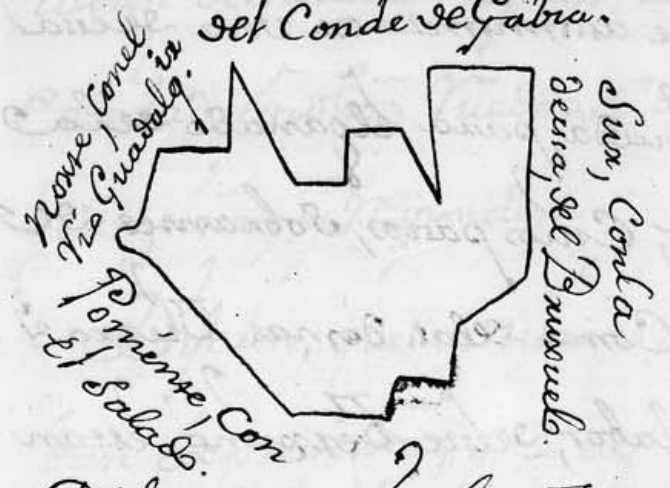 del Conde de Gabia.
Norte, con el
rio Guadalq.ᵛⁱʳ
Sur, Con la
deesa, del
Poniente, con
El Salado.